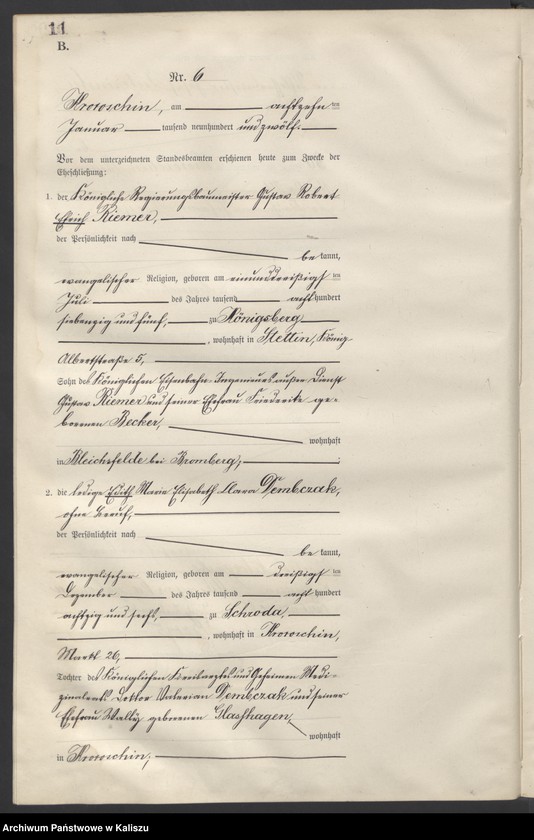 11
B.
Nr. 6
Krotoschin, am achtzehn ten
Januar tausend neunhundert und zwölf.
Vor dem unterzeichneten Standesbeamten erschienen heute zum Zwecke der
Eheschließung:
1. der Königliche Regierungsbaumeister Gustav Robert
Erich Riemer,
der Persönlichkeit nach
be kannt,
evangelischer Religion, geboren am einunddreißigs ten
Juli des Jahres tausend acht hundert
siebenzig und fünf, zu Königsberg
, wohnhaft in Stettin, König
Albertstraße 5,
Sohn des Königlichen Eisenbahn-Ingenieurs außer Dienst
Gustav Riemer und seiner Ehefrau Friederike ge-
borenen Becker,
wohnhaft
in Bleichfelde bei Bromberg;
2. die ledige Edith Maria Elisabeth Clara Dembczak,
ohne Beruf,
der Persönlichkeit nach
be kannt,
evangelischer Religion, geboren am dreißigs ten
Dezember des Jahres tausend acht hundert
achtzig und sechs, zu Schroda,
, wohnhaft in Krotoschin,
Markt 26,
Tochter des Königlichen Kreisarztes und Geheimen Medi-
zinalrats Doktor Valerian Dembczak und seiner
Ehefrau Wally geborenen Hashagen,
wohnhaft
in Krotoschin;
Archiwum Państwowe w Kaliszu